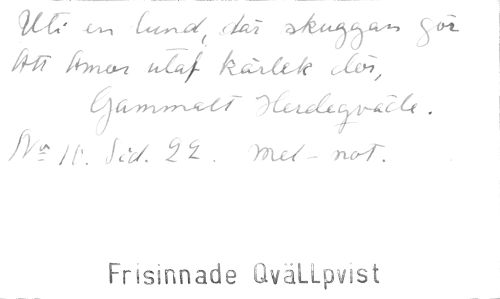 Uti en lund, där skuggan gör
Att Amor utaf kärlek dör,
Gammalt Herdeqväde.
No 11. Sid. 22. mel-not.
Frisinnade QväLLpvist